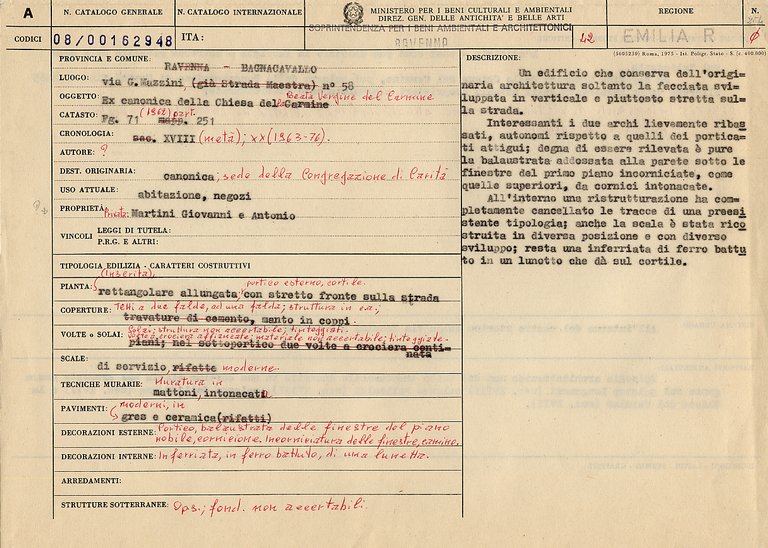 A
N. CATALOGO GENERALE
N. CATALOGO INTERNAZIONALE
MINISTERO PER I BENI CULTURALI E AMBIENTALI
DIREZ. GEN. DELLE ANTICHITA' E BELLE ARTI
REGIONE
N.
CODICI
08/00162948
ITA:
SOPRINTENDENZA PER I BENI AMBIENTALI E ARCHITETTONICI
RAVENNA
42
EMILIA R
(5605239) Roma, 1975 - Ist. Poligr. Stato - S. (c. 400.000)
PROVINCIA E COMUNE: RAVENNA - BAGNACAVALLO
LUOGO: via G.Mazzini, (già Strada Maestra) n° 58
OGGETTO: Ex canonica della Chiesa del Carmine
Beata Vergine del Carmine
CATASTO: Fg. 71 mapp. 251
(1962) part.
CRONOLOGIA: sec. XVIII (metà); XX (1963-76).
AUTORE: ?
DEST. ORIGINARIA: canonica; sede della Congregazione di Carità
USO ATTUALE: abitazione, negozi
PROPRIETÀ: Privata: Martini Giovanni e Antonio
VINCOLI
LEGGI DI TUTELA:
P.R.G. E ALTRI:
TIPOLOGIA EDILIZIA - CARATTERI COSTRUTTIVI
(Inserita)
PIANTA: rettangolare allungata, con stretto fronte sulla strada
portico esterno, cortile.
COPERTURE: Tetti a due falde, ad una falda; struttura in c.a.;
travature di cemento, manto in coppi.
VOLTE o SOLAI: Solai: struttura non accertabile; tinteggiati.
volte a crociera affiancate; materiale non accertabile; tinteggiate.
piani; nel sottoportico due volte a crociera centi=
nata
SCALE: di servizio, rifatte moderne.
TECNICHE MURARIE: Muratura in
mattoni, intonacati
PAVIMENTI: moderni, in
gres e ceramica (rifatti)
DECORAZIONI ESTERNE: Portico, balaustrata delle finestre del piano
nobile, cornicione. Incorniciatura delle finestre, camino.
DECORAZIONI INTERNE: Inferriata, in ferro battuto, di una lunetta.
ARREDAMENTI:
STRUTTURE SOTTERRANEE: Ops.; fond. non accertabili.
DESCRIZIONE:
Un edificio che conserva dell'origi=
naria architettura soltanto la facciata svi=
luppata in verticale e piuttosto stretta sul=
la strada.
Interessanti i due archi lievemente ribas
sati, autonomi rispetto a quelli dei portica=
ti attigui; degna di essere rilevata è pure
la balaustrata addossata alla parete sotto le
finestre del primo piano incorniciate, come
quelle superiori, da cornici intonacate.
All'interno una ristrutturazione ha com=
pletamente cancellato le tracce di una preesi
stente tipologia; anche la scala è stata rico
struita in diversa posizione e con diverso
sviluppo; resta una inferriata di ferro battu
to in un lunotto che dà sul cortile.